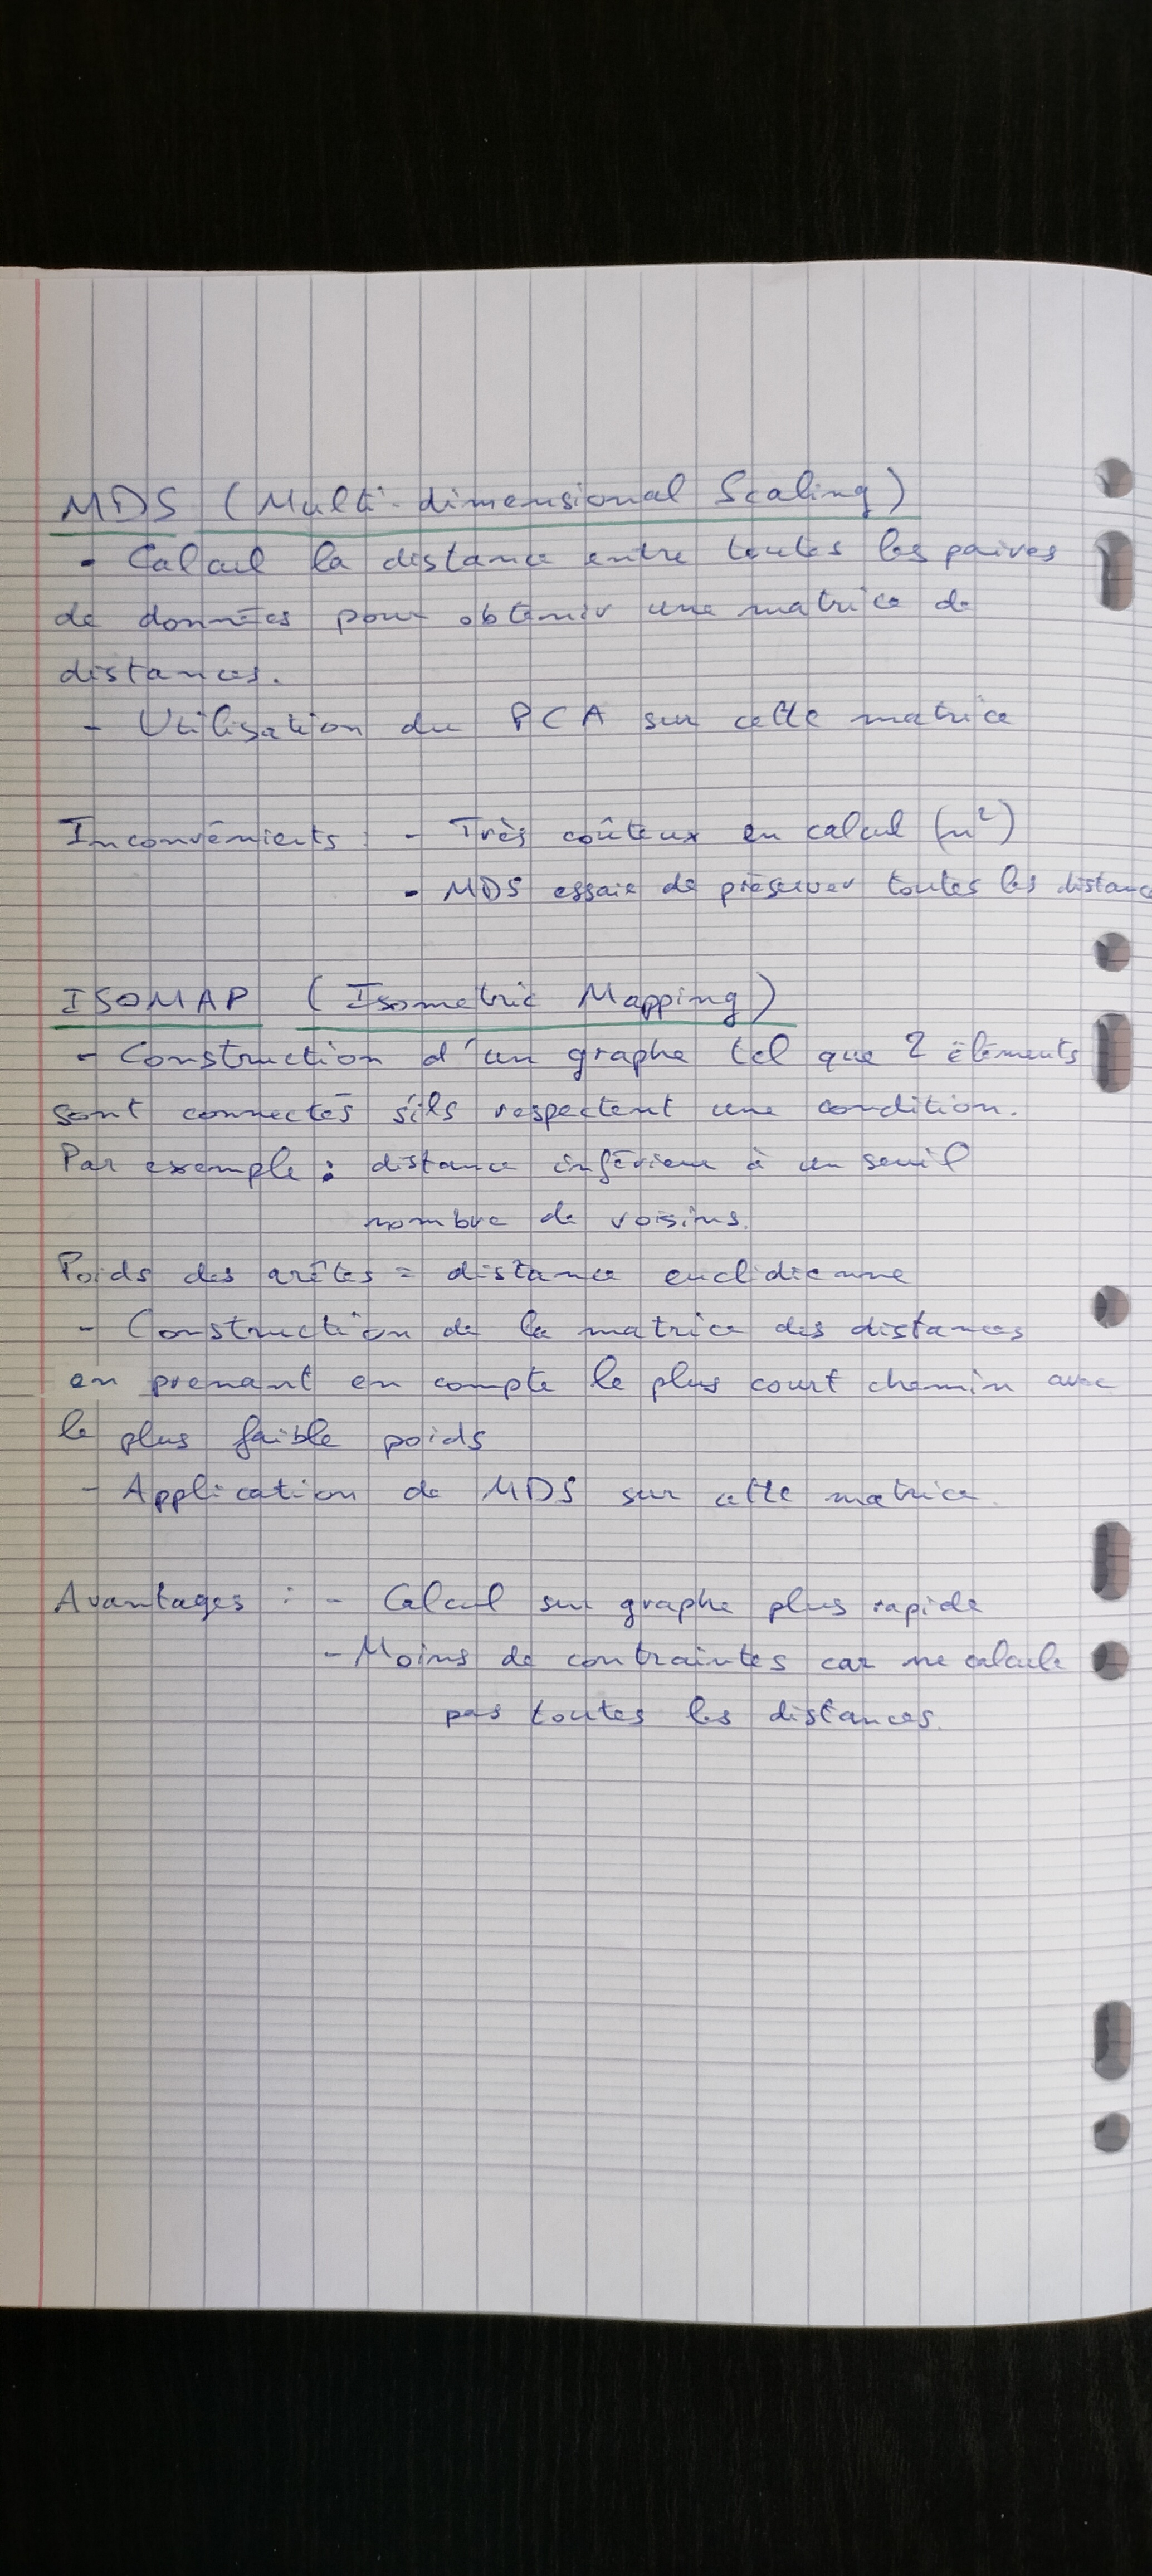 MDS (Multi-dimensional Scaling)
- Calcul la distance entre toutes les paires
de données pour obtenir une matrice de
distances.
- Utilisation du PCA sur cette matrice
Inconvénients : - Très coûteux en calcul (n²)
- MDS essaie de préserver toutes les distance
ISOMAP (Isometric Mapping)
- Construction d'un graphe tel que 2 éléments
sont connectés s'ils respectent une condition.
Par exemple : distance inférieure à un seuil
nombre de voisins.
Poids des arêtes = distance euclidienne
- Construction de la matrice des distances
en prenant en compte le plus court chemin avec
le plus faible poids
- Application de MDS sur cette matrice.
Avantages : - Calcul sur graphe plus rapide
- Moins de contraintes car ne calcule
pas toutes les distances.